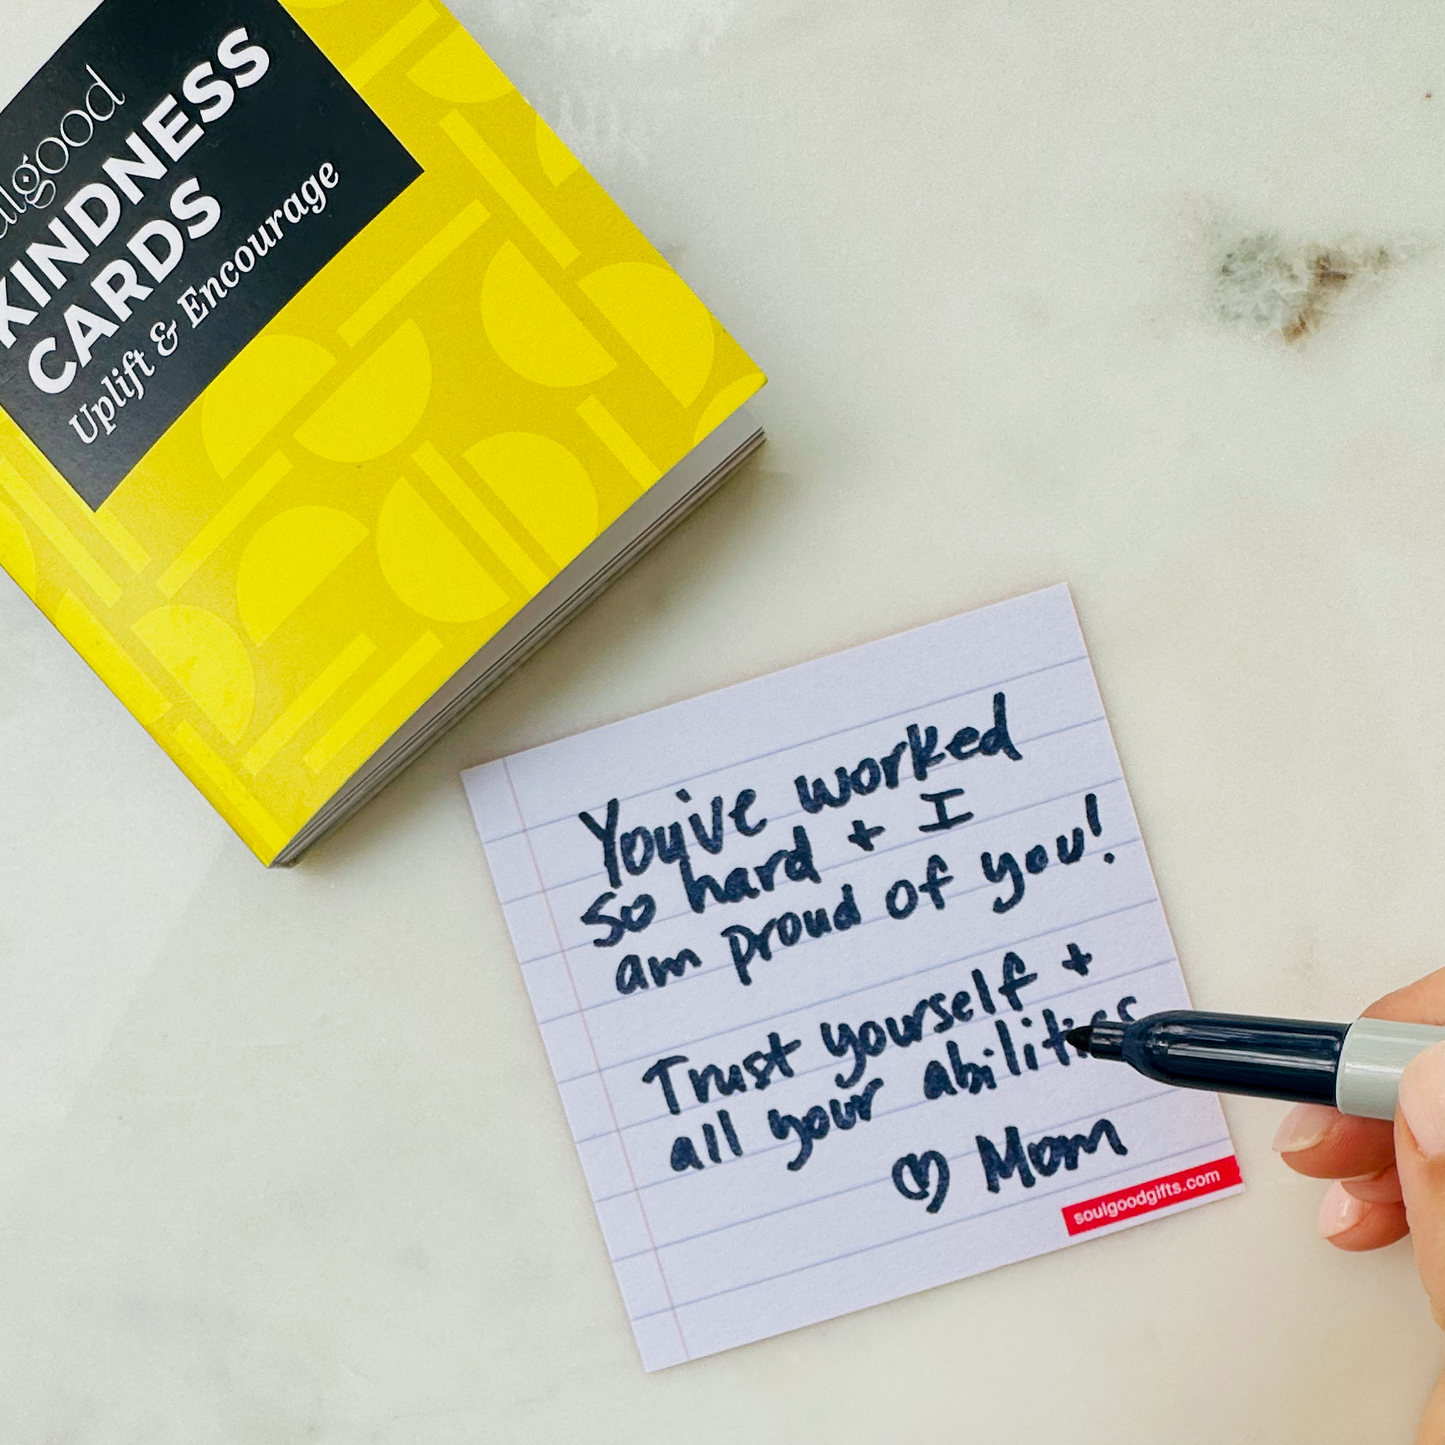 KINDNESS
CARDS
Uplift & Encourage
You've worked
so hard + I
am proud of you!
Trust yourself +
all your abilities
♡ Mom
soulgoodgifts.com